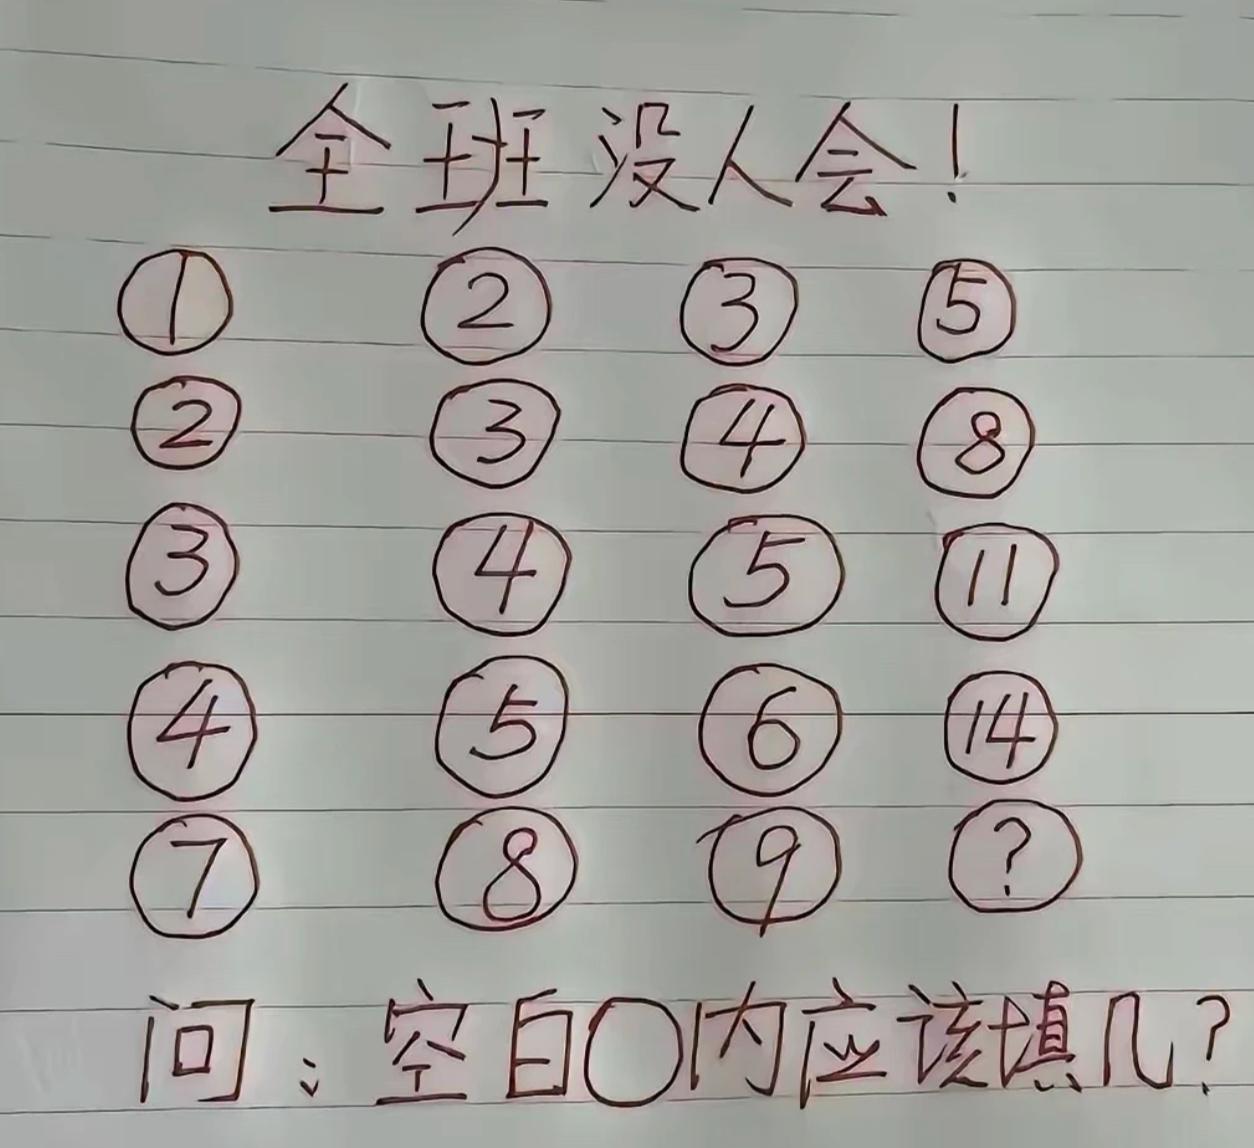 全班没人会!
① ② ③ ⑤
② ③ ④ ⑧
③ ④ ⑤ ⑪
④ ⑤ ⑥ ⑭
⑦ ⑧ ⑨ ?
问:空白○内应该填几?